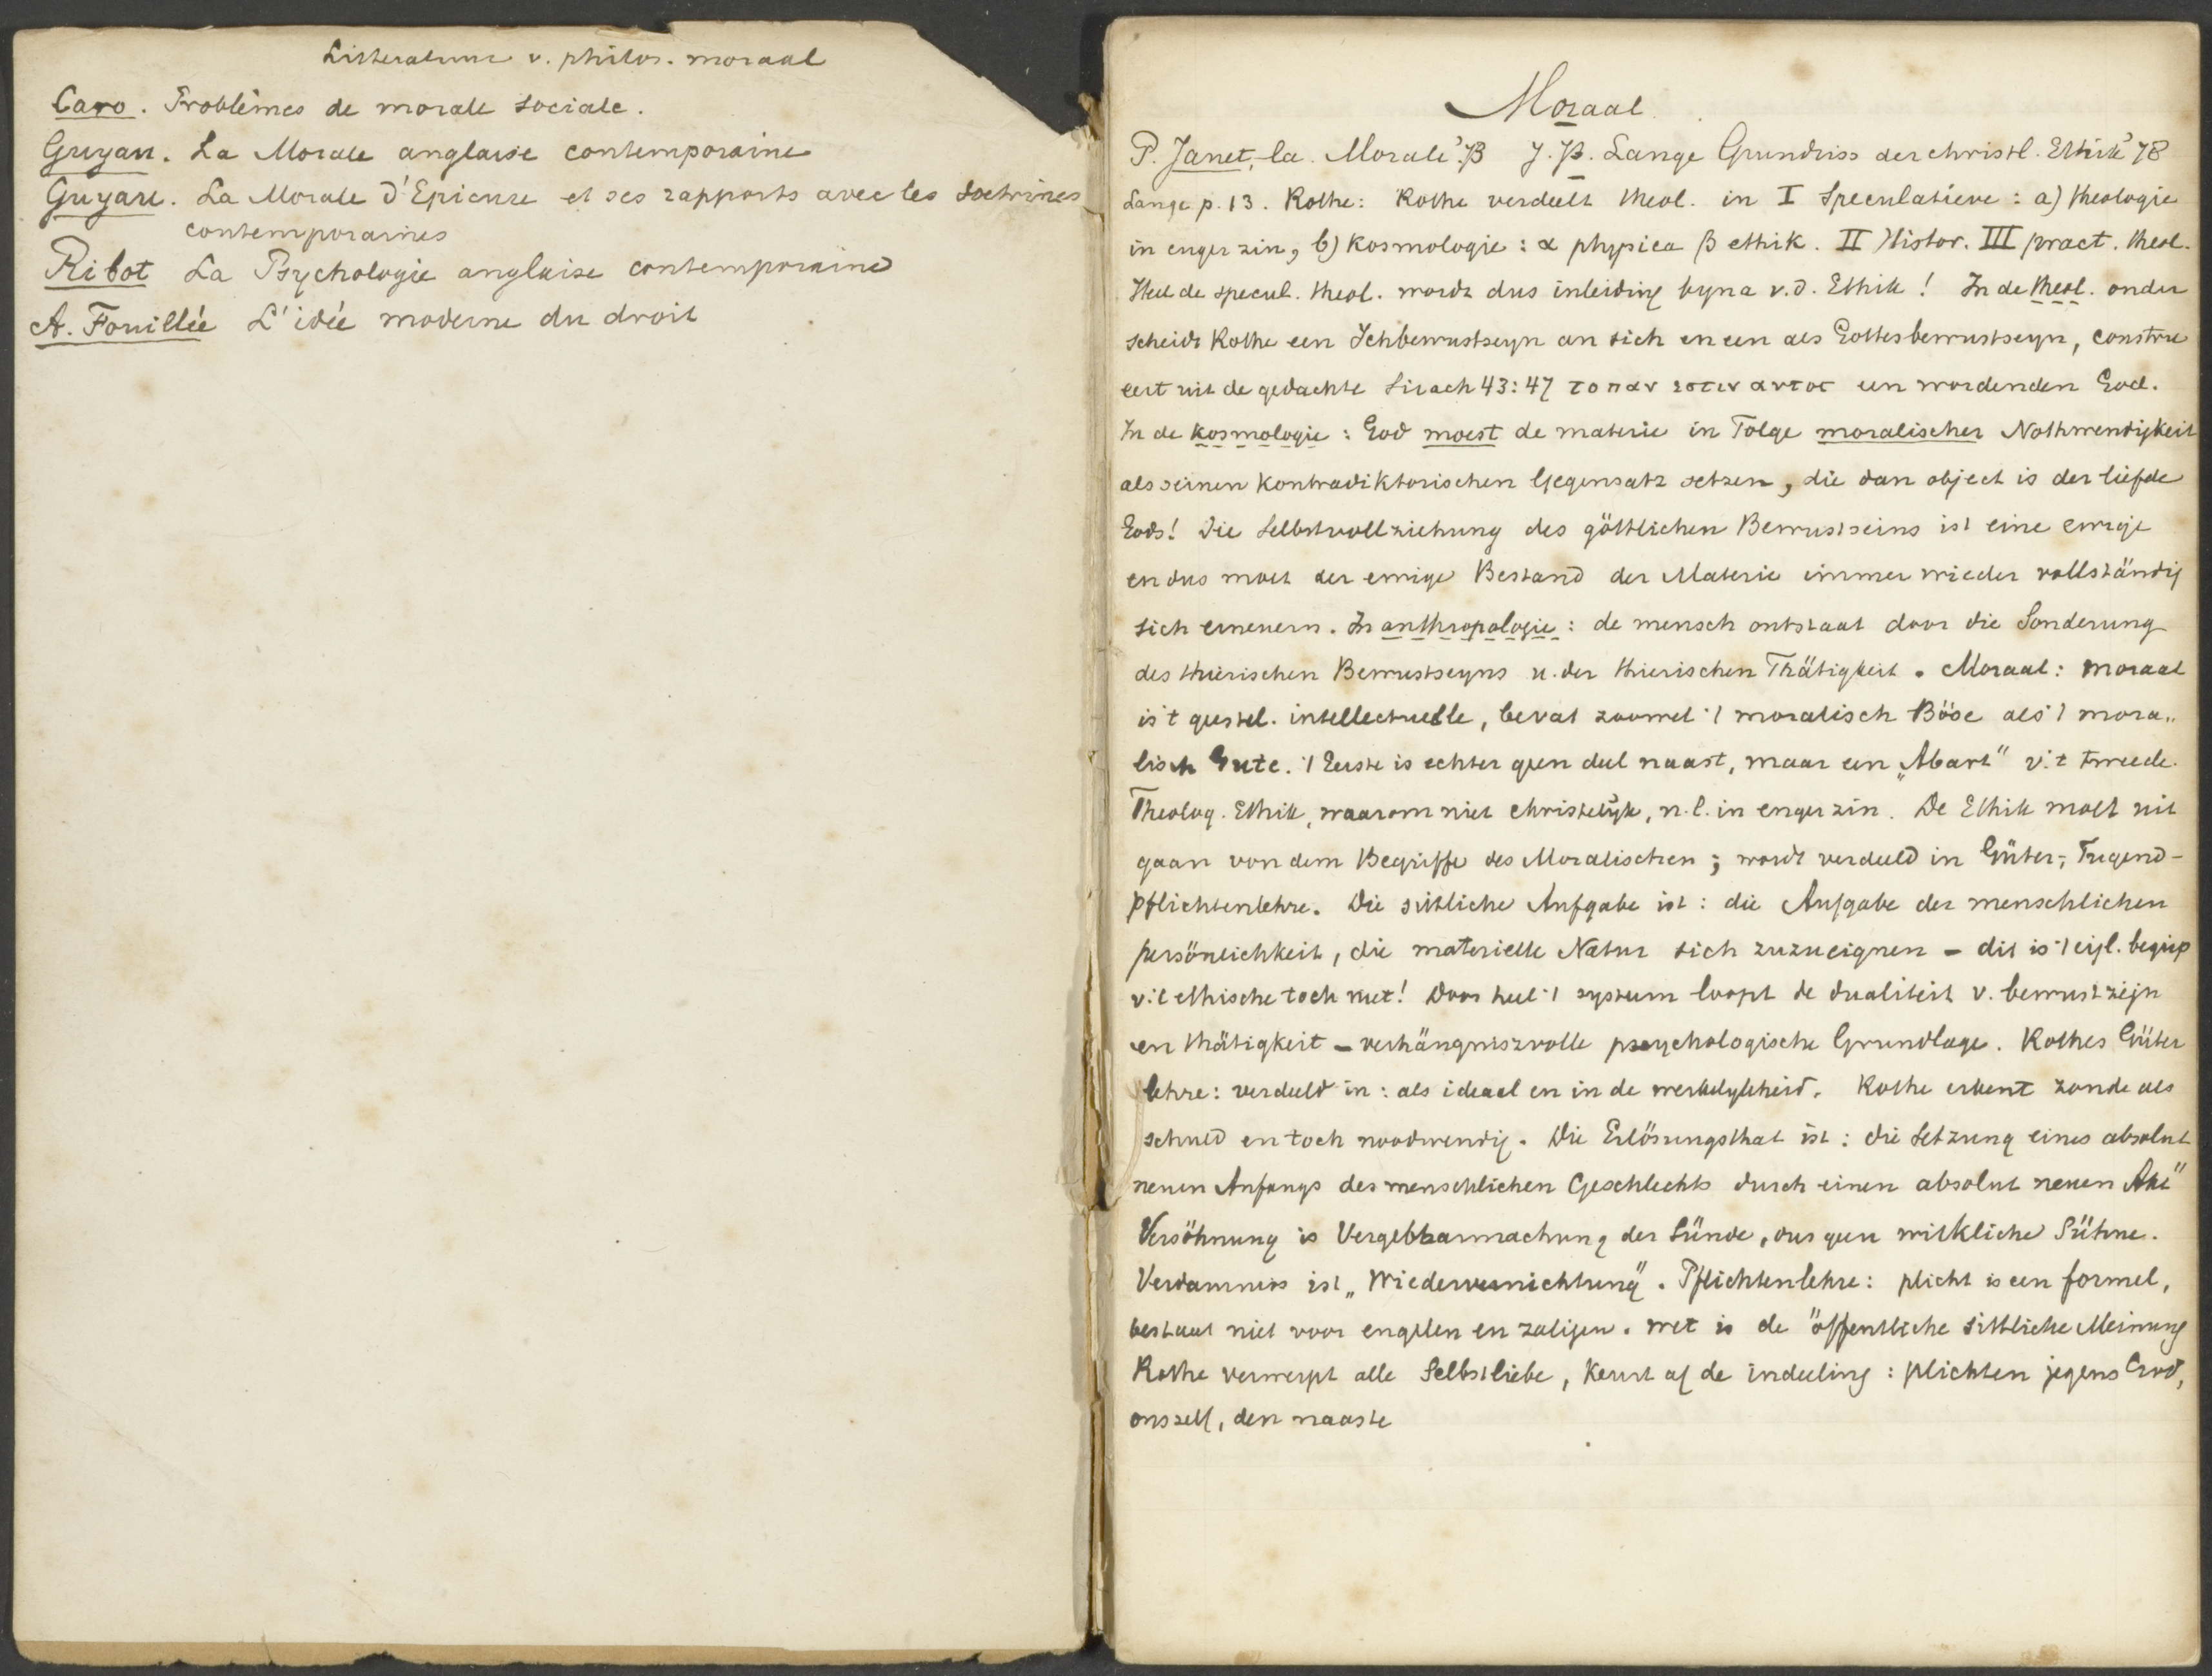 Litteratuur v. philos. moraal
Caro. Problèmes de morale sociale.
Guyau. La Morale anglaise contemporaine
Guyau. La Morale d'Epicure et ses rapports avec les doctrines
contemporaines
Ribot La Psychologie anglaise contemporaine
A. Fouillée L'idée moderne du droit
Moraal
P. Janet, la Morale J. P. Lange Grundriss der christl. Ethik '78
Lange p. 13. Rothe: Rothe verdeelt theol. in I Speculatieve: a) theologie
in enger zin, b) Kosmologie: α physica β ethik. II Histor. III pract. theol.
Heel de specul. theol. wordt dus inleiding byna v.d. Ethik! In de theol. onder
scheidt Rothe een Ichbewustseyn an sich en een als Gottesbewustseyn, constru
eert uit de gedachte Sirach 43:47 το παν εστιν αυτος een wordenden God.
In de kosmologie: God moest de materie in Folge moralischer Nothwendigkeit
als seinen kontradiktorischen Gegensatz setzen, die dan object is der liefde
Gods! Die Selbstvollziehung des göttlichen Bewustseins ist eine ewige
en dus moet der ewige Bestand der Materie immer wieder vollständig
sich erneuern. In anthropologie: de mensch ontstaat door die Sonderung
des thierischen Bewustseyns u. der thierischen Thätigkeit. Moraal: moraal
is 't geestel. intellectuelle, bevat zoowel 't moralisch Böse als 't mora„
lisch Gute. 't Eerste is echter geen deel naast, maar een „Abart" v. 't tweede.
Theolog. Ethik, waarom niet christelijk, n.l. in enger zin. De Ethik moet uit
gaan von dem Begriffe des Moralischen; wordt verdeeld in Güter-, Tugend-
pflichtenlehre. Die sittliche Aufgabe ist: die Aufgabe der menschlichen
persönlichkeit, die materielle Natur sich zuzueignen - dit is 't eigl. begrip
v. 't ethische toch niet! Door heel 't systeem loopt de dualiteit v. bewustzijn
en thätigkeit - verhängniszvolle psychologische Grundlage. Rothes Güter
lehre: verdeeld in: als ideaal en in de werkelykheid. Rothe erkent zonde als
schuld en toch noodwendig. Die Erlösungsthat ist: die Setzung eines absolut
neuen Anfangs des menschlichen Geschlechts durch einen absolut neuen Akt"
Versöhnung is Vergebbarmachung der Sünde, dus geen wirkliche Sühne.
Verdamnis ist „Wiedervernichtung". Pflichtenlehre: plicht is een formel,
bestaat niet voor engelen en zaligen. Wet is de öffentliche sittliche Meinung
Rothe verwerpt alle Selbstliebe, keurt af de indeeling: plichten jegens God,
onszelf, den naaste